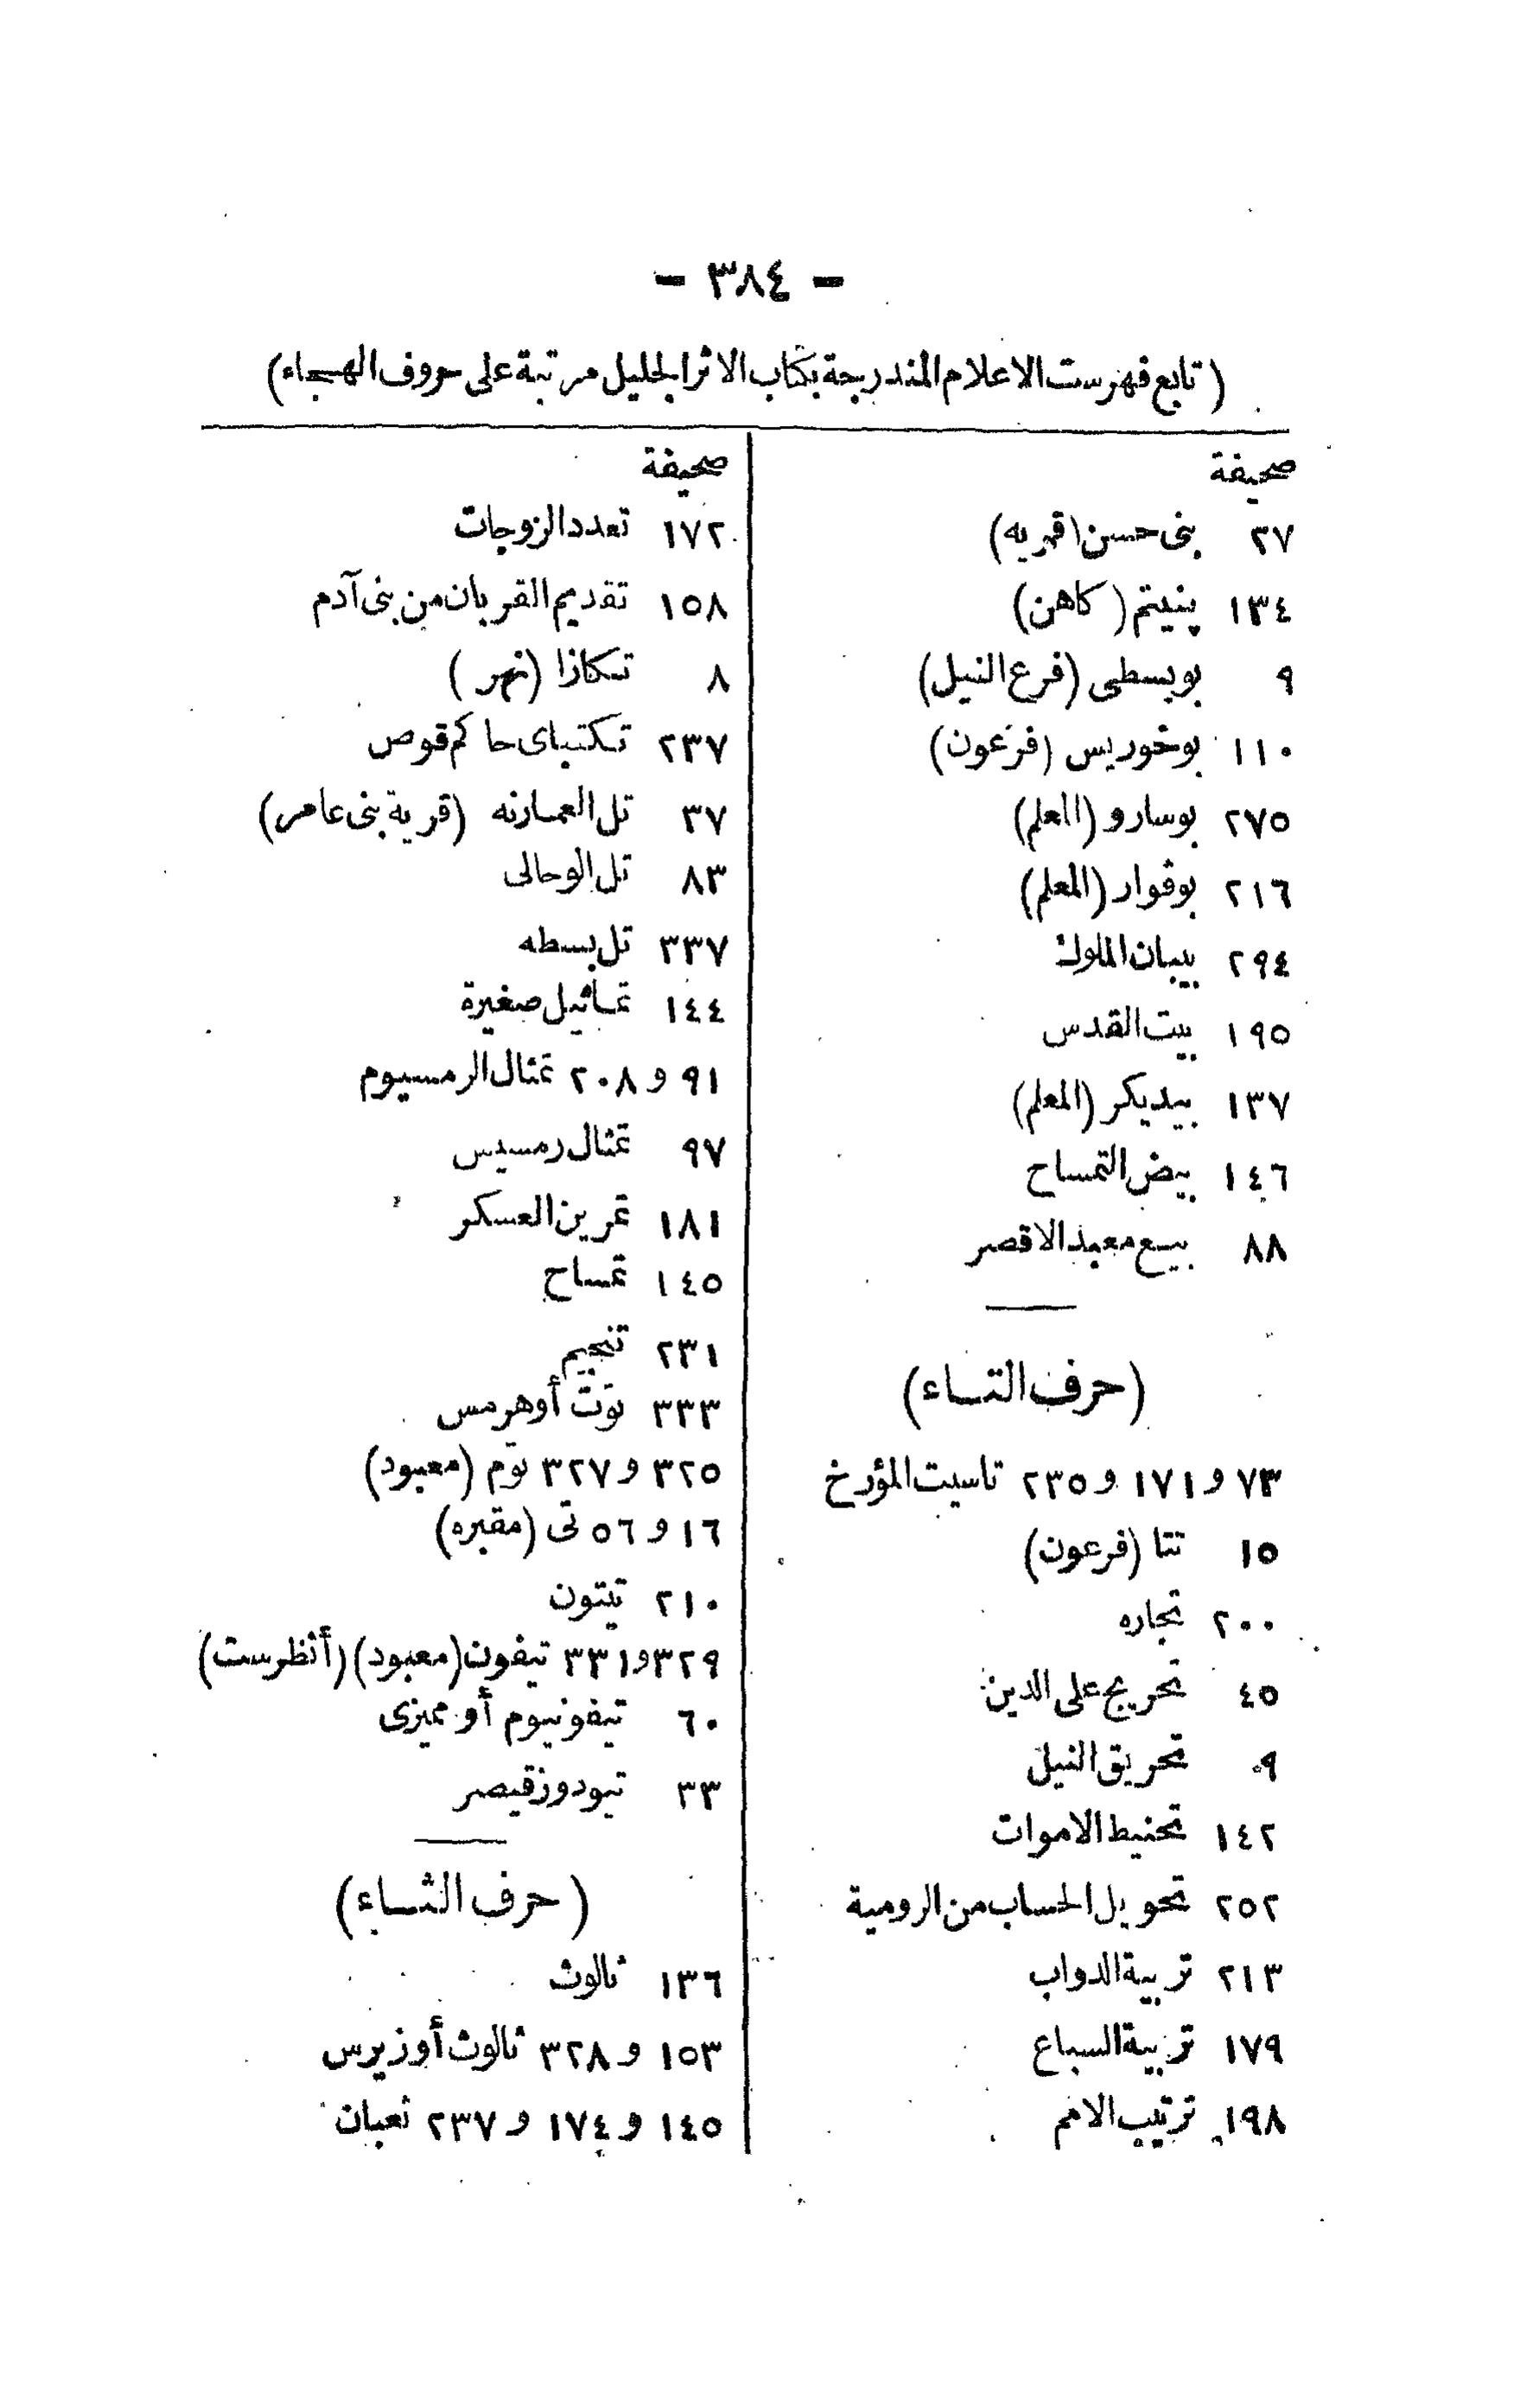 - ٣٨٤ -
(تابع فهرست الاعلام المندرجة بكتاب الاثر الجليل مرتبة على حروف الهجاء)
صحيفة
٢٧ بنى حسن (قريه)
١٣٤ پنيتم (كاهن)
٩ بوبسطى (فرع النيل)
١١٠ بوخوريس (فرعون)
٢٧٥ بوسارو (المعلم)
٢١٦ بوڤوار (المعلم)
٢٩٤ بيبان الملوك
١٩٥ بيت القدس
١٣٧ بيديكر (المعلم)
١٤٦ بيض التمساح
٨٨ بيع معبد الاقصر
(حرف التاء)
٧٣ و ١٧١ و ٢٣٥ تاسيت المؤرخ
١٥ تتا (فرعون)
٢٠٠ تجاره
٤٥ تحريج على الدين
٩ تحريق النيل
١٤٢ تحنيط الاموات
٢٥٢ تحويل الحساب من الرومية
٢١٣ تربية الدواب
١٧٩ تربية السباع
١٩٨ ترتيب الامم
صحيفة
١٧٢ تعدد الزوجات
١٥٨ تقديم القربان من بنى آدم
٨ تكازا (نهر)
٢٣٧ تكتباى حاكم قوص
٣٧ تل العمارنه (قرية بنى عامر)
٨٣ تل الوحالى
٣٣٧ تل بسطه
١٤٤ تماثيل صغيرة
٩١ و ٢٠٨ تمثال الرمسيوم
٩٧ تمثال رمسيس
١٨١ تمرين العسكر
١٤٥ تمساح
٢٣١ تنجيم
٣٣٣ توت أوهرمس
٣٢٥ و ٣٢٧ توم (معبود)
١٦ و ٥٦ تى (مقبره)
٢١٠ تيتون
٣٢٩ و ٣٣١ تيفون (معبود) (أنظر ست)
٦٠ تيفونيوم أو مميزى
٣٣ تيودوز قيصر
(حرف الثاء)
١٣٦ ثالوث
١٥٣ و ٣٢٨ ثالوث أوزيرس
١٤٥ و ١٧٤ و ٢٣٧ ثعبان